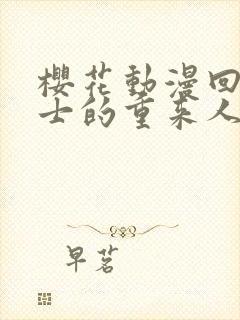 櫻花動漫回
士的重来人
早茗